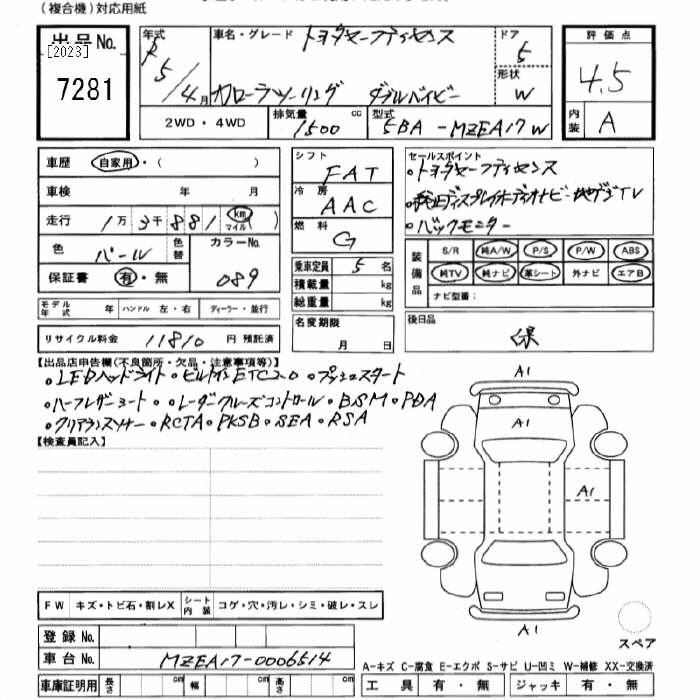 (複合機)対応用紙
出品No.
[2023]
7281
年式
R5/4月
車名・グレード トヨタセーフティセンス
カローラツーリング ダブルバイビー
ドア
5
形状
W
2WD・4WD
排気量
1500 cc
型式
5BA-MZEA17W
評価点
4.5
内装
A
車歴 自家用・( )
車検 年 月
走行 1万 3千 881 km マイル
色 パール 色替
カラーNo.
089
保証書 有・無
モデル年式 年 ハンドル 左・右 ディーラー・並行
リサイクル料金 11810 円 預託済
シフト
FAT
冷房
AAC
燃料
G
乗車定員 5 名
積載量 kg
総重量 kg
名変期限
月 日
セールスポイント
・トヨタセーフティセンス
・純正ディスプレイオーディオナビ・地デジTV
・バックモニター
装備品
S/R 純A/W P/S P/W ABS
純TV 純ナビ 革シート 外ナビ エアB
ナビ型番:
後日品
保
【出品店申告欄(不良箇所・欠品・注意事項等)】
・LEDヘッドライト・ビルトインETC2.0・プッシュスタート
・ハーフレザーシート・レーダークルーズコントロール・BSM・PDA
・クリアランスソナー・RCTA・PKSB・SEA・RSA
【検査員記入】
A1
A1
A1
A1
スペア
FW キズ・トビ石・割レX シート内装 コゲ・穴・汚レ・シミ・破レ・スレ
登録No.
車台No. MZEA17-0006514
車庫証明用 長さ cm 幅 cm 高さ cm
A-キズ C-腐食 E-エクボ S-サビ U-凹ミ W-補修 XX-交換済
工具 有・無 ジャッキ 有・無